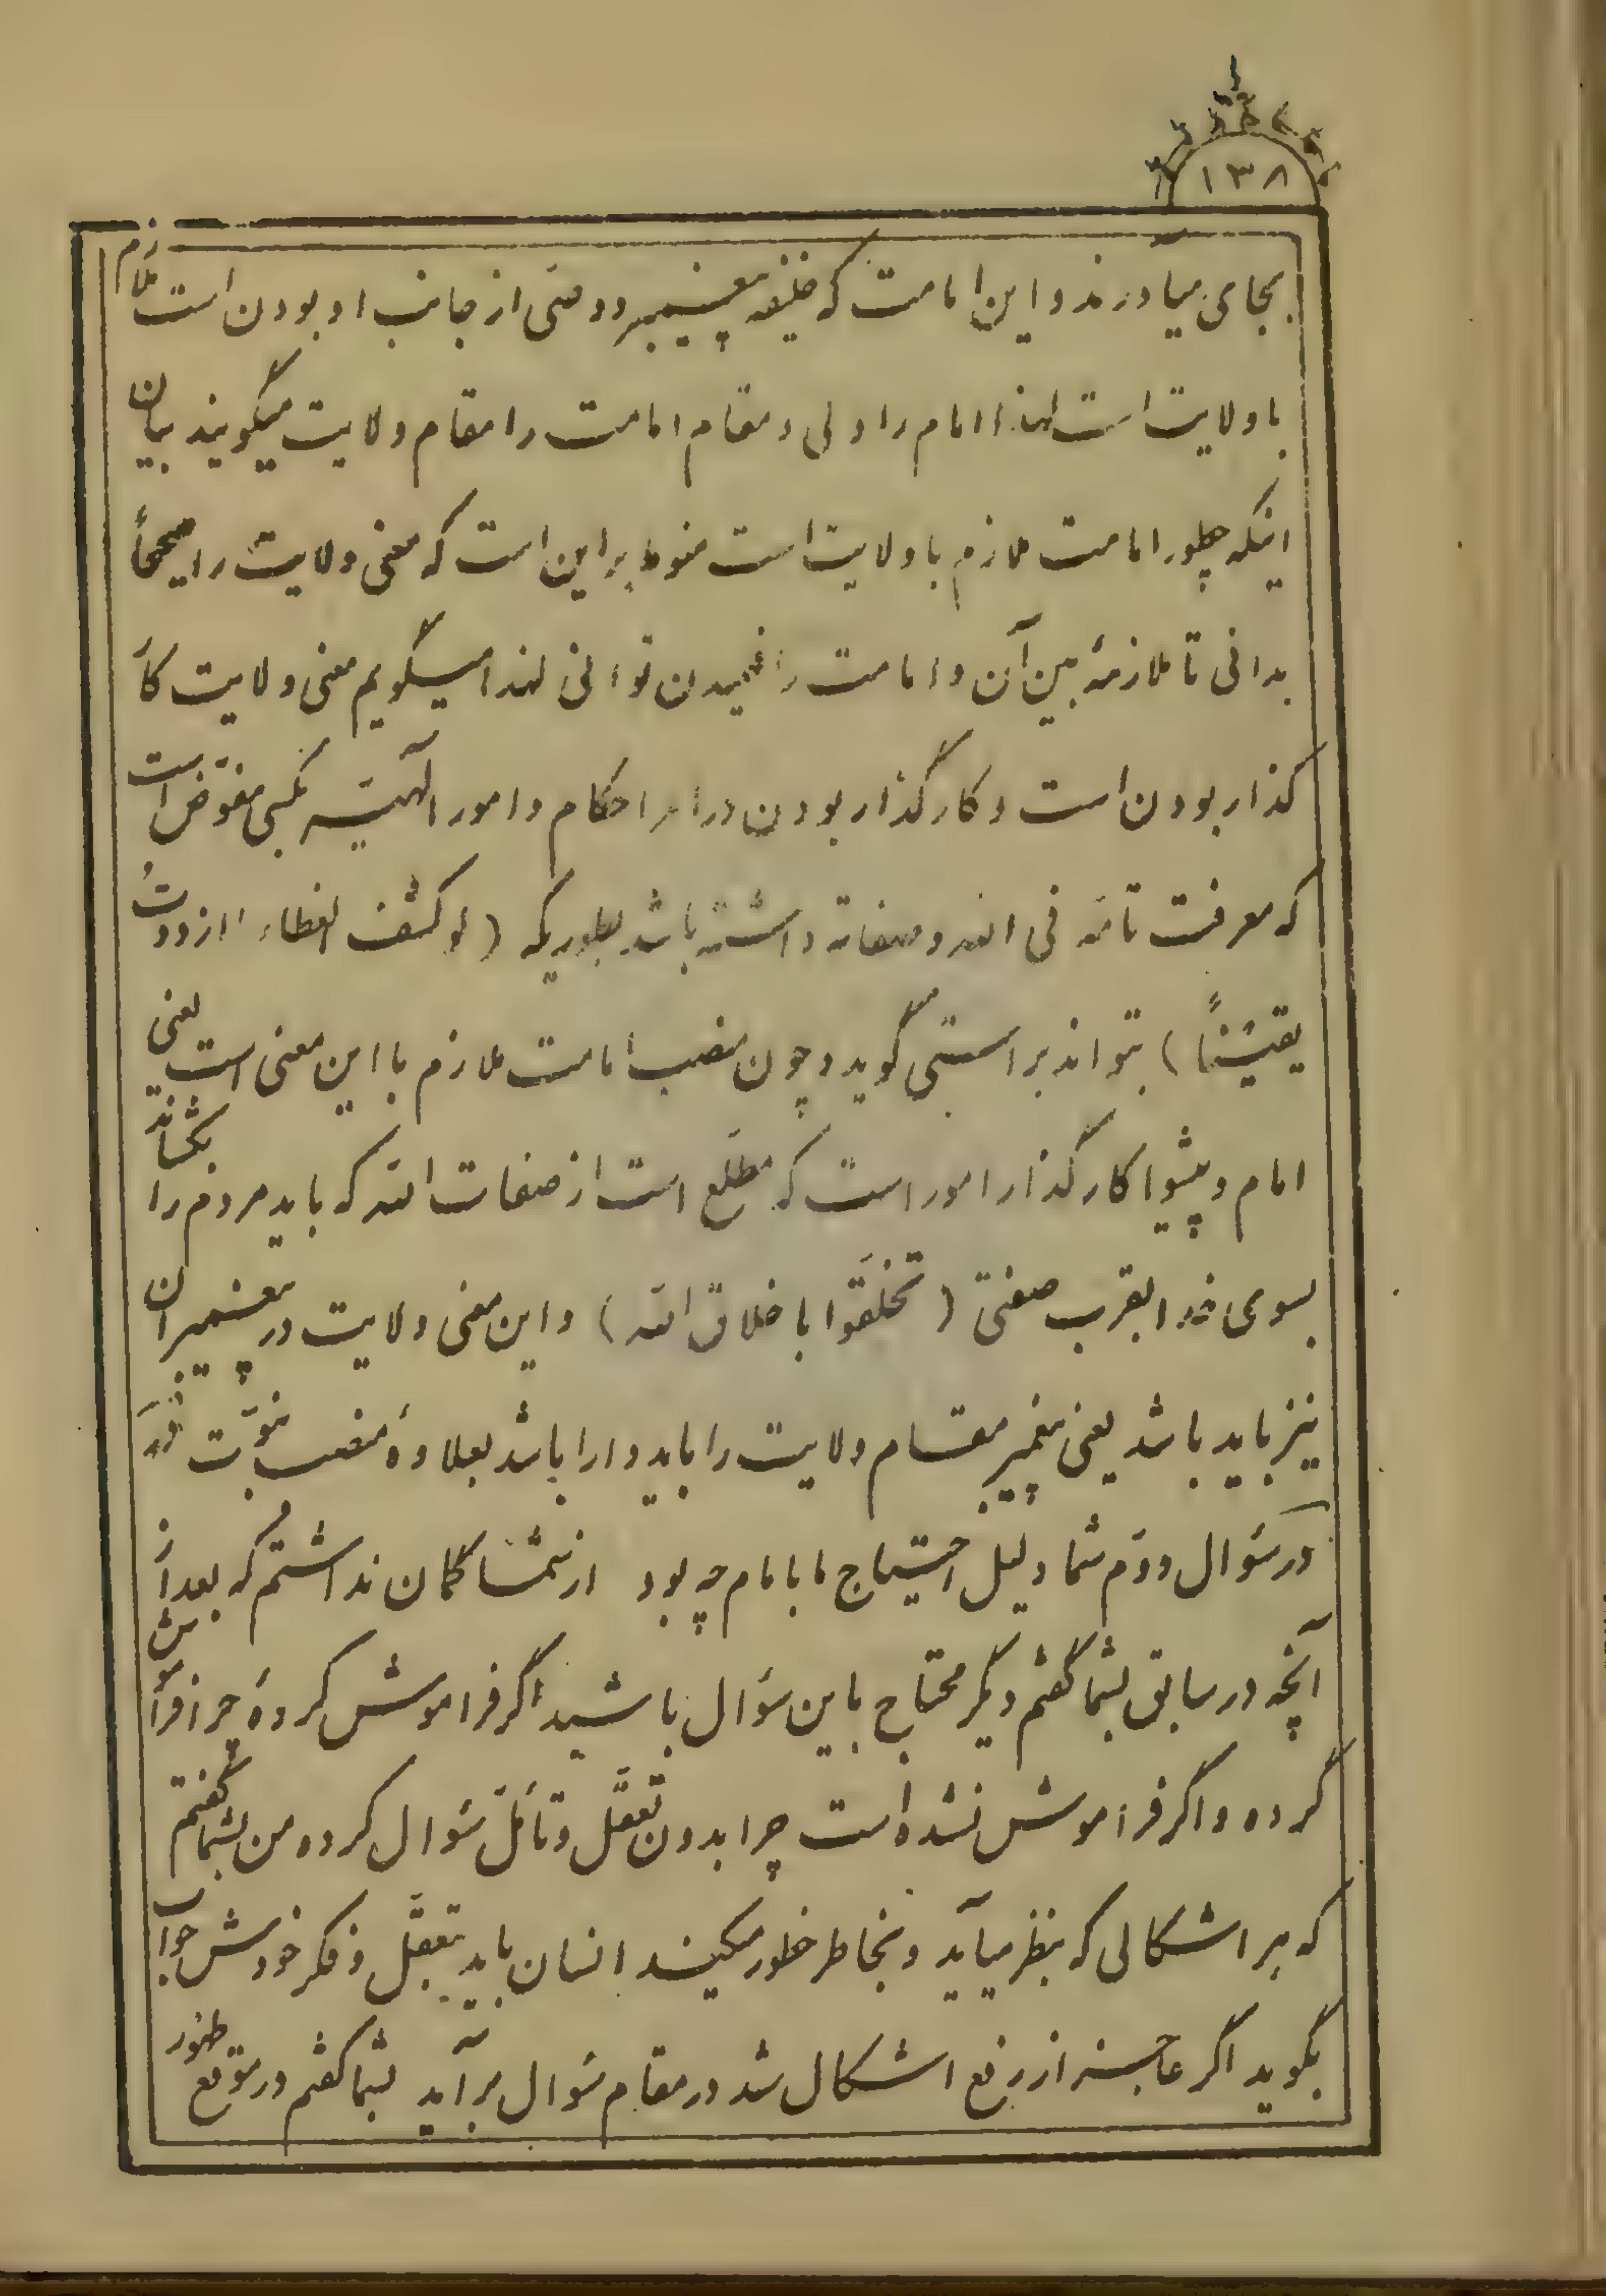 ۱۳۸
بجای میآورند و این امامت که خلیفه پیغمبر و وصی از جانب او بودن است ملازم
با ولایت است لهذا امام را ولی و مقام امامت را مقام ولایت میگویند بیان
اینکه چطور امامت ملازم با ولایت است منوط براین است که معنی ولایت را صحیحاً
بدانی تا ملازمهٔ بین آن و امامت را فهمیدن توانی لهذا میگویم معنی ولایت کار
گذار بودن است و کارگذار بودن در امر احکام و امور الهیّه بکسی مفوّض است
که معرفت تامّه فی الله و صفاته داشته باشد بطوریکه (لو کشف الغطاء ما ازددتُ
یقیناً) بتواند براستی گوید و چون منصب امامت ملازم با این معنی است یعنی
امام و پیشوا کارگذار امور است که مطّلع است از صفات الله که باید مردم را بکشاند
بسوی خدا بقرب صفتی (تخلّقوا باخلاق الله) و این معنی ولایت در پیغمبران
نیز باید باشد یعنی پیغمبر مقام ولایت را باید دارا باشد بعلاوهٔ منصب نبوّت
در سؤال دوّم شما دلیل احتیاج ما بامام چه بود از شما گمان نداشتم که بعد از
آنچه در سابق بشما گفتم دیگر محتاج باین سؤال باشید اگر فراموش کردهٔ چرا فراموش
کرده و اگر فراموش نشده است چرا بدون تعقّل و تأمّل سؤال کرده من بشما گفتم
که هر اشکالی که بنظر میآید و بخاطر خطور میکند انسان باید بتعقّل و فکر خودش جواب
بگوید اگر عاجز از رفع اشکال شد در مقام سؤال برآید بشما گفتم در موقع ظهور